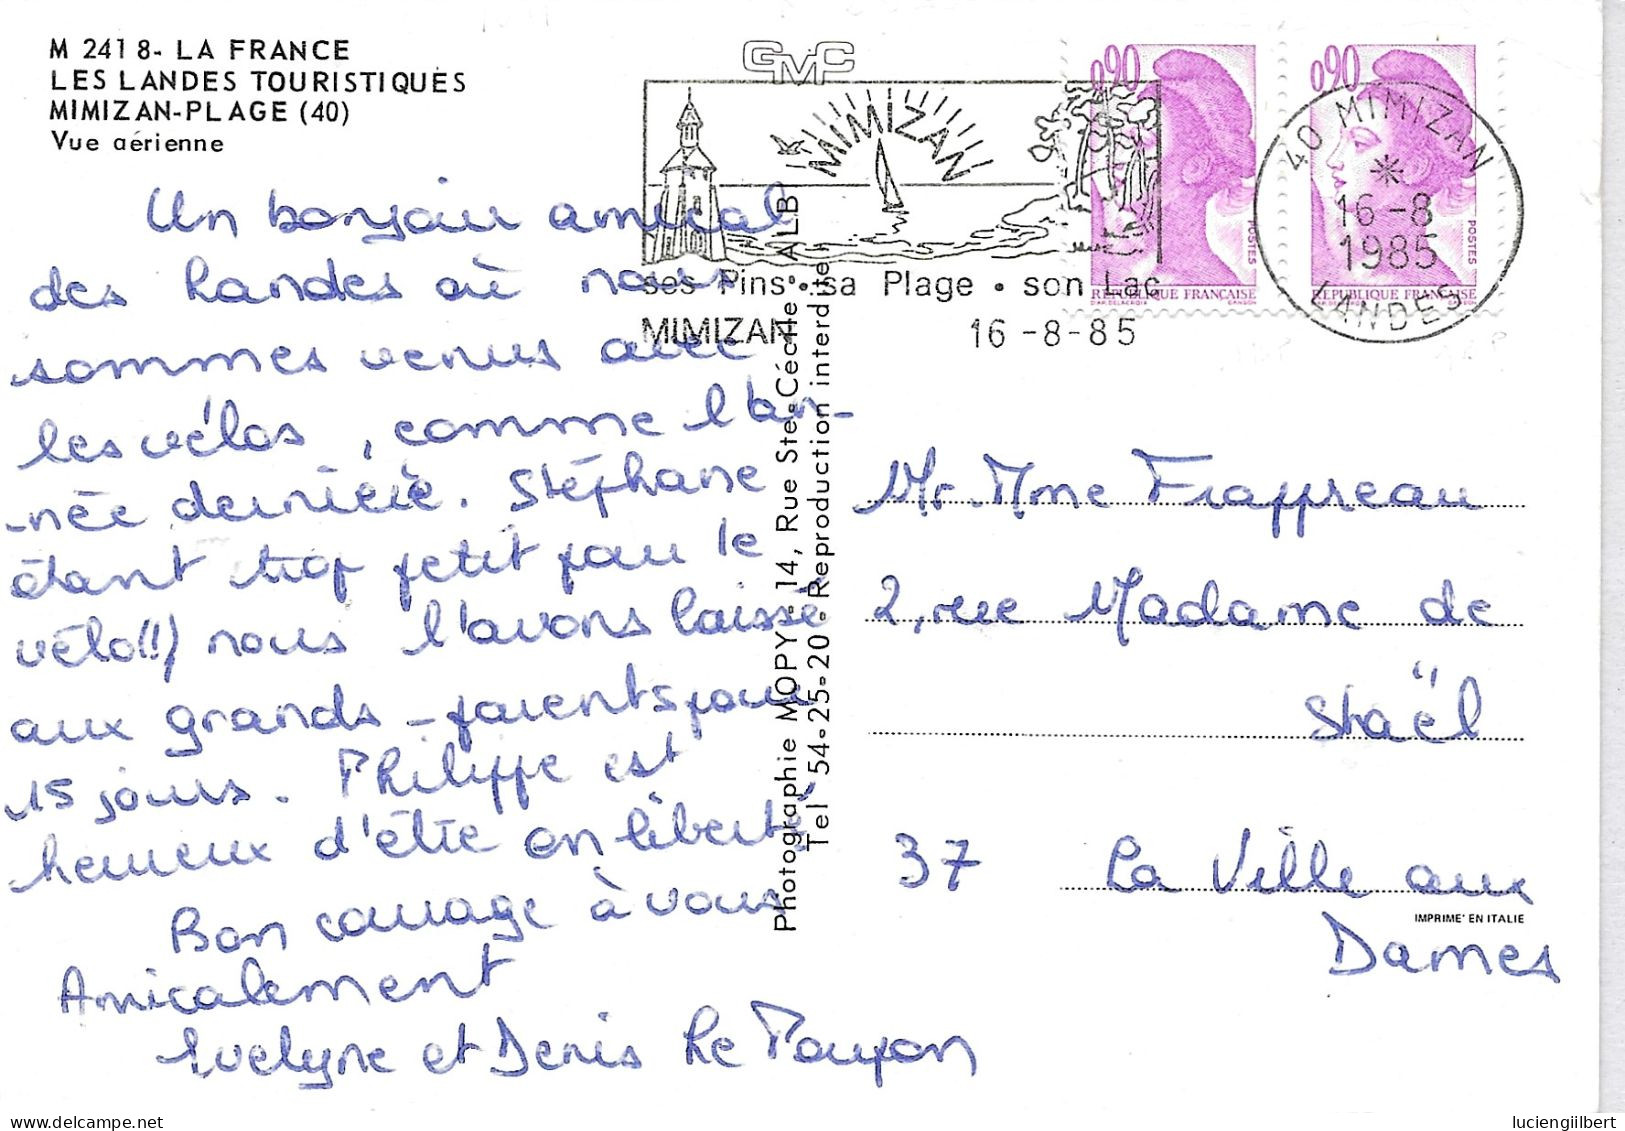 M 2418- LA FRANCE
LES LANDES TOURISTIQUES
MIMIZAN-PLAGE (40)
Vue aérienne
GMC
MIMIZAN
ses Pins • sa Plage • son Lac
MIMIZAN 16-8-85
0,90
POSTES
REPUBLIQUE FRANÇAISE
D'AP. DELACROIX GANDON
0,90
POSTES
REPUBLIQUE FRANÇAISE
D'AP. DELACROIX GANDON
40 MIMIZAN
16-8
1985
LANDES
Un bonjour amical
des Landes où nous
sommes venus avec
les vélos, comme l'an-
-née dernière. Stéphane
étant trop petit pour le
vélo(!!) nous l'avons laissé
aux grands-parents pour
15 jours. Philippe est
heureux d'être en liberté
Bon courage à vous
Amicalement
Evelyne et Denis
Photographie MOPY - 14, Rue Ste-Cécile ALBI
Tel 54-25-20 - Reproduction interdite
Mr. Mme Frappreau
2, rue Madame de
Staël
37 La Ville aux
Dames
IMPRIME' EN ITALIE
luciengilbert